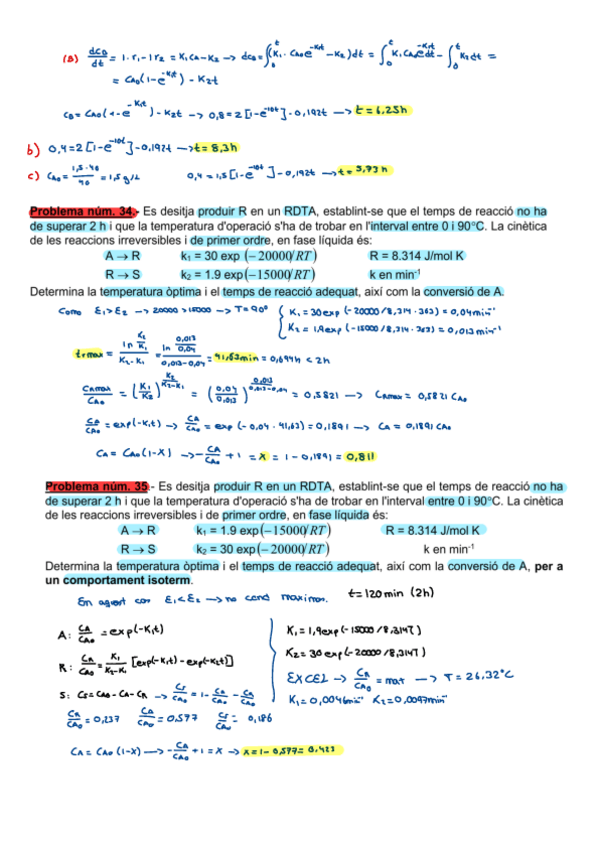 (B) dC_B/dt = 1·r₁-1r₂ = K₁C_A-K₂ → dC_B = ∫₀ᵗ(K₁·C_A0 e^-K₁t -K₂)dt = ∫₀ᵗ K₁C_A0 e^-K₁t dt - ∫₀ᵗ K₂dt =
= C_A0(1-e^-K₁t) - K₂t
C_B = C_A0(1-e^-K₁t) - K₂t → 0,8 = 2[1-e^-10t] - 0,192t → t = 6,25h
b) 0,4 = 2[1-e^-10t] - 0,192t → t = 8,3h
c) C_A0 = 1,5·40/40 = 1,5 g/L 0,4 = 1,5[1-e^-10t] - 0,192t → t = 5,73h
Problema núm. 34.- Es desitja produir R en un RDTA, establint-se que el temps de reacció no ha
de superar 2 h i que la temperatura d'operació s'ha de trobar en l'interval entre 0 i 90°C. La cinètica
de les reaccions irreversibles i de primer ordre, en fase líquida és:
A → R k₁ = 30 exp (-20000/RT) R = 8.314 J/mol K
R → S k₂ = 1.9 exp(-15000/RT) k en min⁻¹
Determina la temperatura òptima i el temps de reacció adequat, així com la conversió de A.
Como E₁>E₂ → 20000>15000 → T=90° K₁ = 30exp(-20000/8,314·363) = 0,04min⁻¹
K₂ = 1,9exp(-15000/8,314·363) = 0,013min⁻¹
t_rmax = ln K₂/K₁ / K₂-K₁ = ln 0,013/0,04 / 0,013-0,04 = 41,63min = 0,694h < 2h
C_Rmax/C_A0 = (K₁/K₂)^(K₂/K₂-K₁) = (0,04/0,013)^(0,013/0,013-0,04) = 0,5821 → C_Rmax = 0,5821 C_A0
C_A/C_A0 = exp(-K₁t) → C_A/C_A0 = exp(-0,04·41,63) = 0,1891 → C_A = 0,1891 C_A0
C_A = C_A0(1-X) → -C_A/C_A0 + 1 = X = 1-0,1891 = 0,811
Problema núm. 35.- Es desitja produir R en un RDTA, establint-se que el temps de reacció no ha
de superar 2 h i que la temperatura d'operació s'ha de trobar en l'interval entre 0 i 90°C. La cinètica
de les reaccions irreversibles i de primer ordre, en fase líquida és:
A → R k₁ = 1.9 exp(-15000/RT) R = 8.314 J/mol K
R → S k₂ = 30 exp(-20000/RT) k en min⁻¹
Determina la temperatura òptima i el temps de reacció adequat, així com la conversió de A, per a
un comportament isoterm.
En aquest cas E₁<E₂ → no cond maximes. t=120min (2h)
A: C_A/C_A0 = exp(-K₁t) K₁ = 1,9exp(-15000/8,314T)
R: C_R/C_A0 = K₁/K₂-K₁ [exp(-K₁t) - exp(-K₂t)] K₂ = 30exp(-20000/8,314T)
EXCEL → C_R/C_A0 = max → T = 26,32°C
S: C_S = C_A0-C_A-C_R → C_S/C_A0 = 1 - C_A/C_A0 - C_R/C_A0 K₁=0,0046min⁻¹ K₂=0,0097min⁻¹
C_R/C_A0 = 0,237 C_A/C_A0 = 0,577 C_S/C_A0 = 0,186
C_A = C_A0(1-X) → -C_A/C_A0 + 1 = X → X = 1-0,577 = 0,423